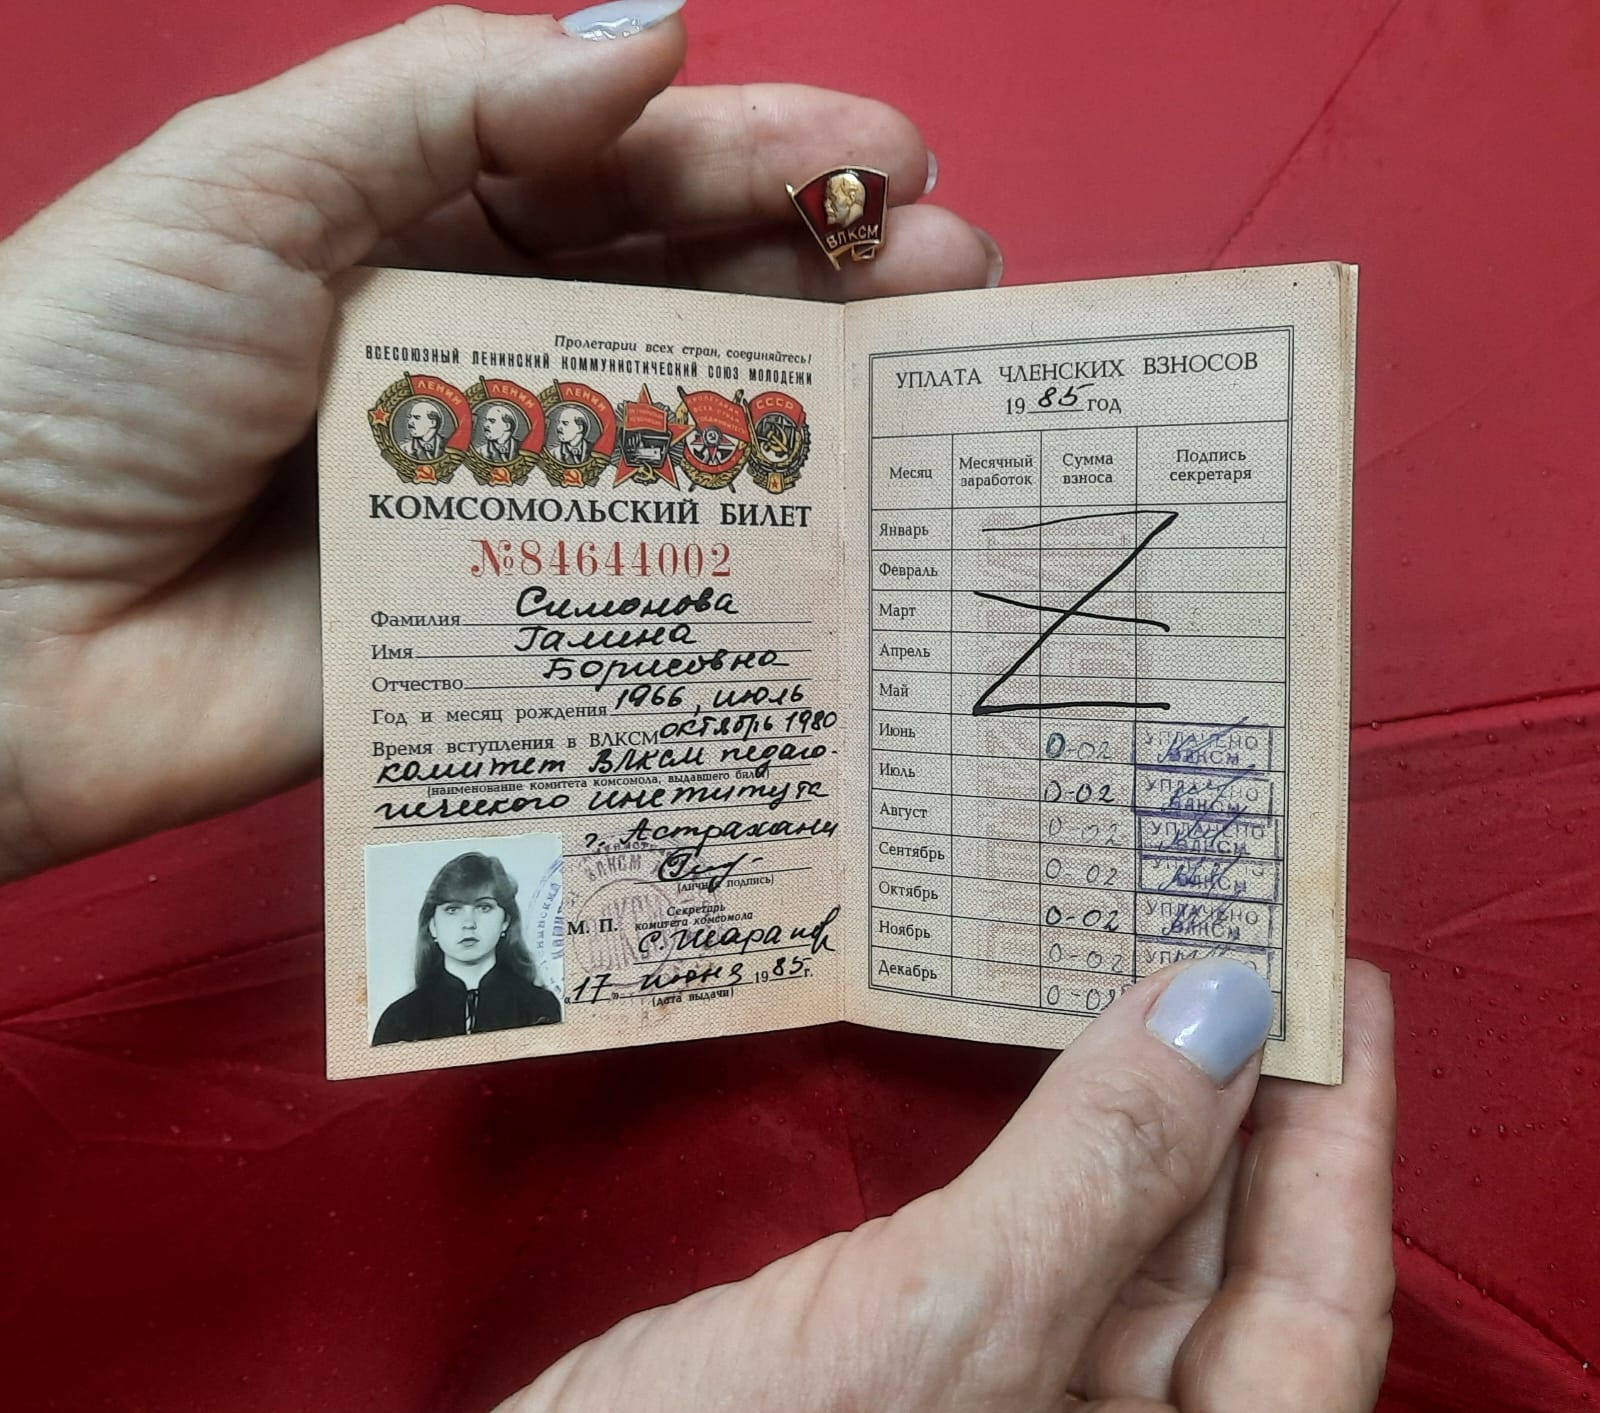 ВЛКСМ
Пролетарии всех стран, соединяйтесь!
ВСЕСОЮЗНЫЙ ЛЕНИНСКИЙ КОММУНИСТИЧЕСКИЙ СОЮЗ МОЛОДЕЖИ
ЛЕНИН ЛЕНИН ЛЕНИН СССР
КОМСОМОЛЬСКИЙ БИЛЕТ
№84644002
Фамилия Симонова
Имя Галина
Отчество Борисовна
Год и месяц рождения 1966, июль
Время вступления в ВЛКСМ октябрь 1980
комитет ВЛКСМ педаго-
(наименование комитета комсомола, выдавшего билет)
гического института
г. Астрахани
(личная подпись)
М. П.
Секретарь
комитета комсомола
С. Шарапов
"17" июня 1985г.
(дата выдачи)
УПЛАТА ЧЛЕНСКИХ ВЗНОСОВ
1985 год
Месяц Месячный заработок Сумма взноса Подпись секретаря
Январь
Февраль
Март
Апрель
Май
Июнь 0-02 УПЛАЧЕНО ВЛКСМ
Июль 0-02 УПЛАЧЕНО ВЛКСМ
Август 0-02 УПЛАЧЕНО ВЛКСМ
Сентябрь 0-02 УПЛАЧЕНО ВЛКСМ
Октябрь 0-02 УПЛАЧЕНО ВЛКСМ
Ноябрь 0-02
Декабрь 0-02